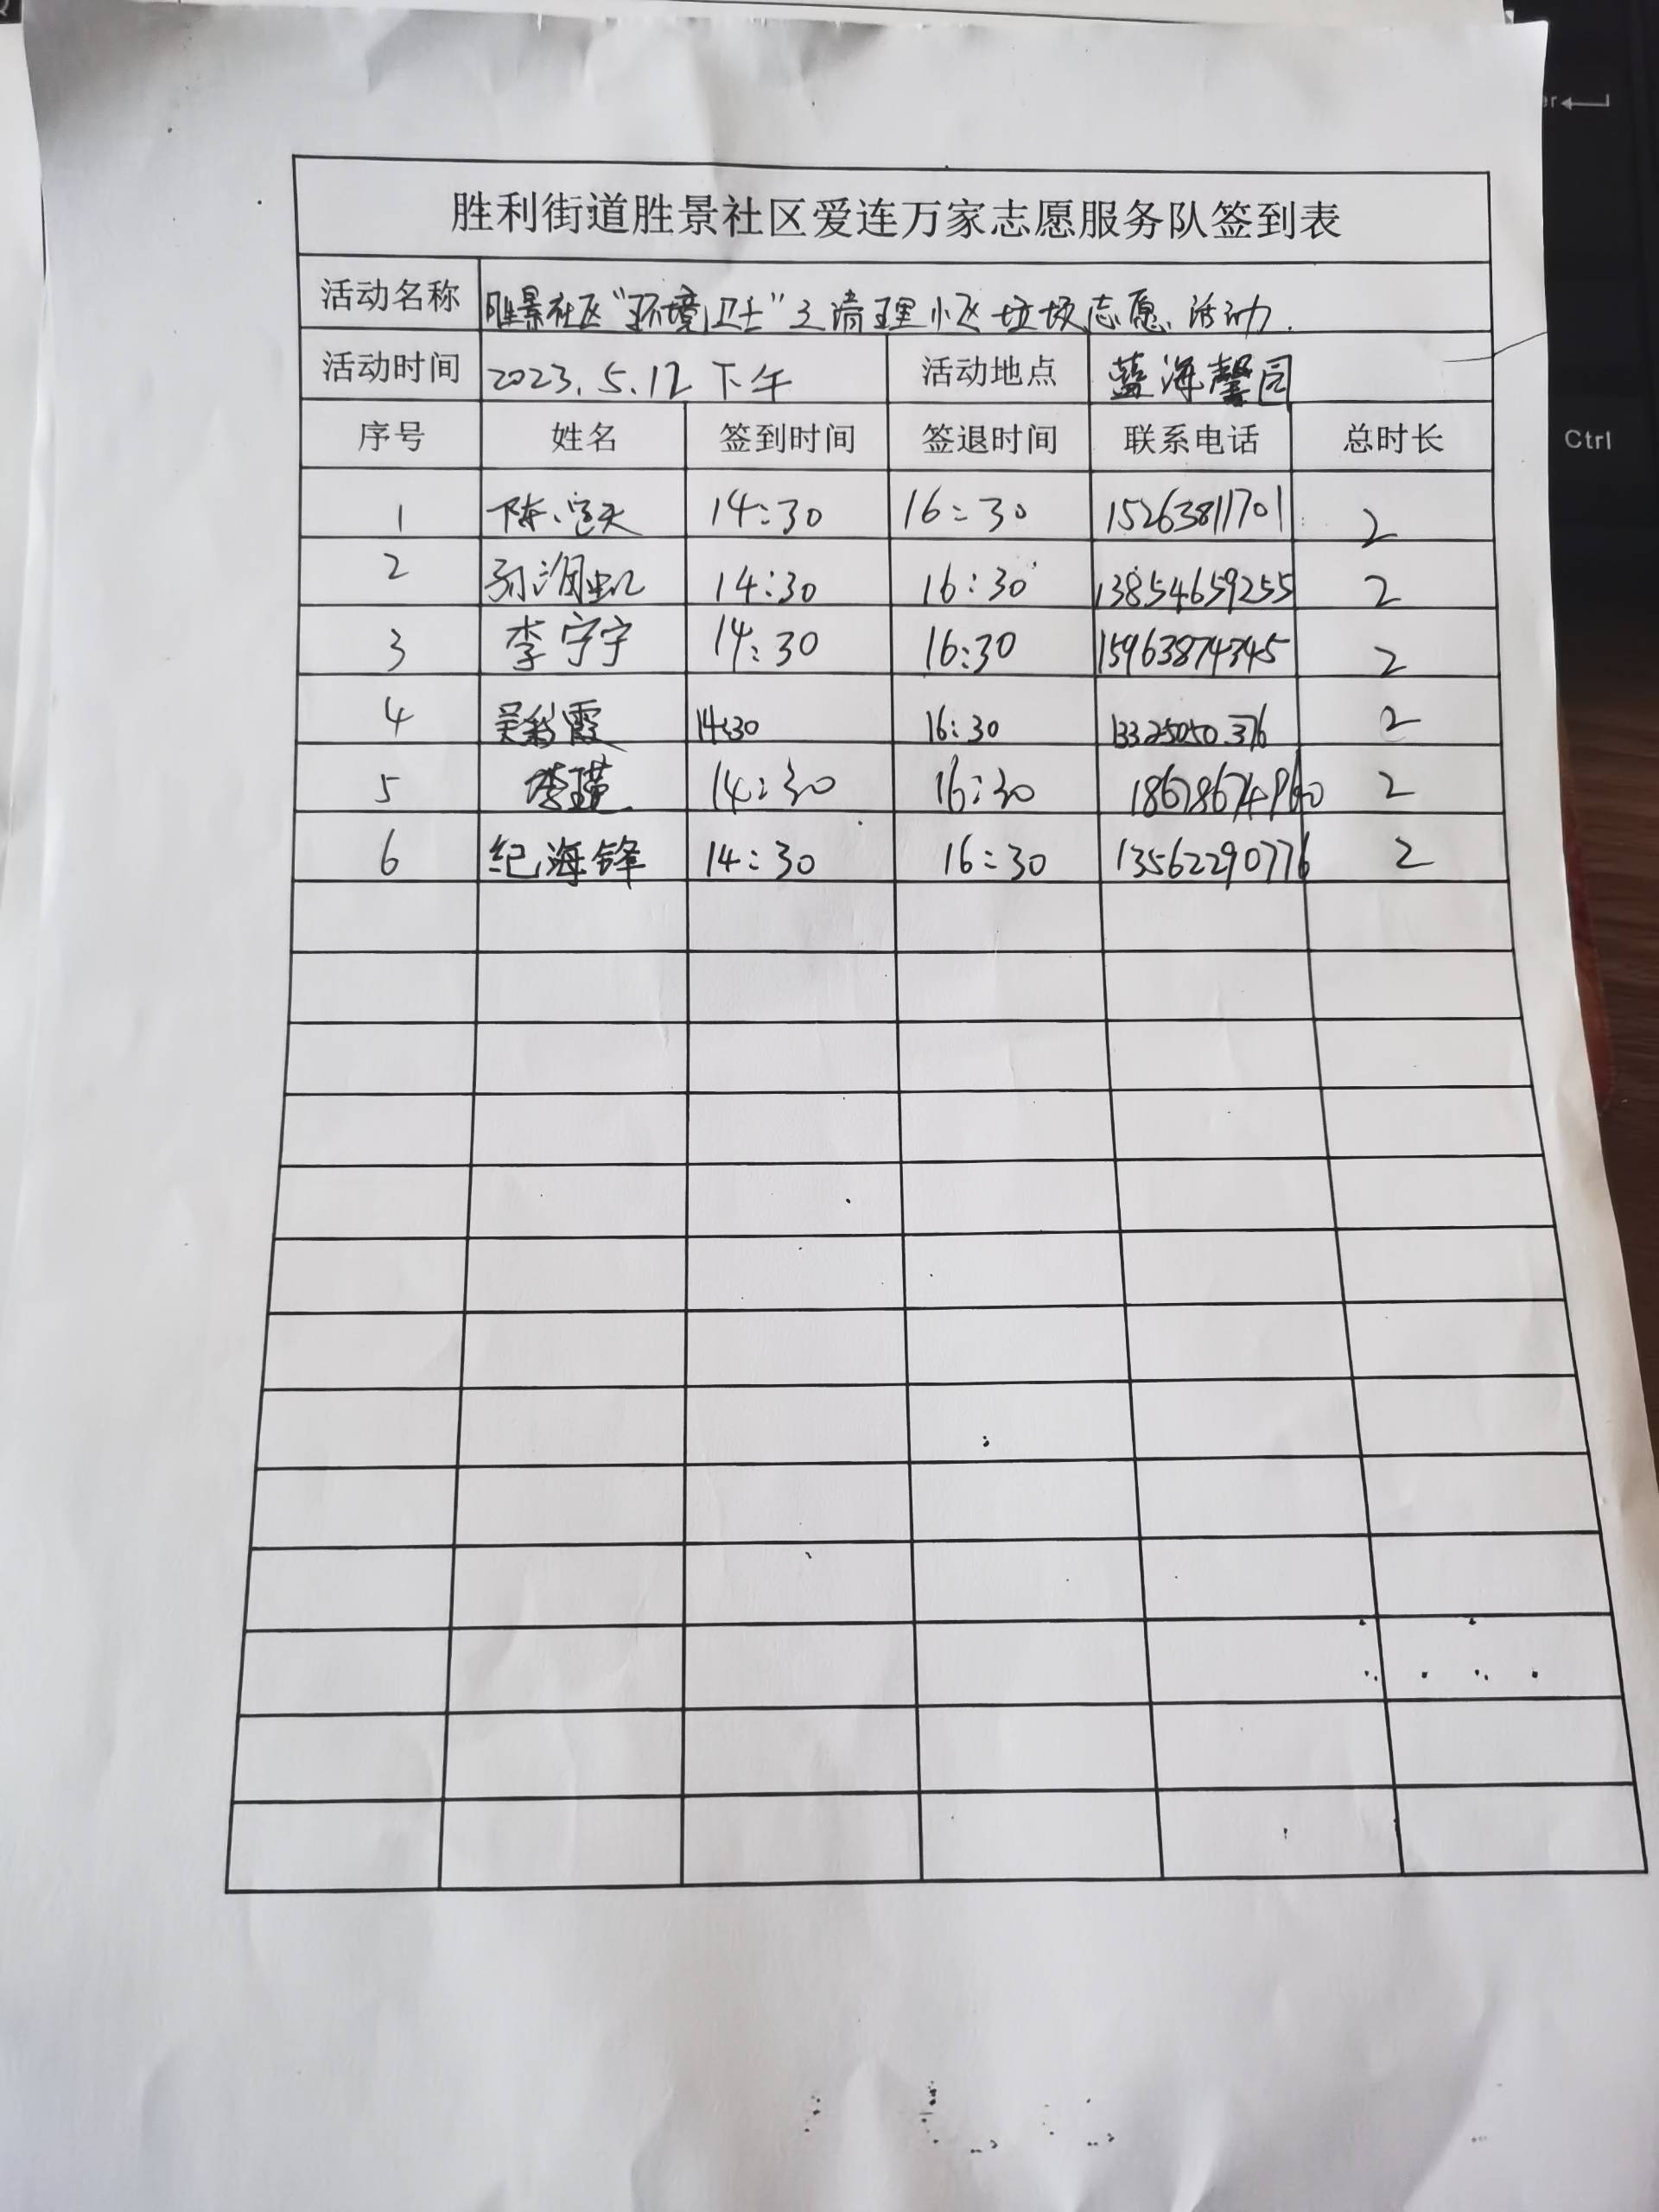 胜利街道胜景社区爱连万家志愿服务队签到表
活动名称 胜景社区“环境卫士”之清理小区垃圾志愿活动.
活动时间 2023.5.12 下午 活动地点 蓝海馨园
序号 姓名 签到时间 签退时间 联系电话 总时长
1 陈 14:30 16:30 15263811701 2
2 孙 14:30 16:30 13854659255 2
3 李宁宁 14:30 16:30 15963874345 2
4 吴彩霞 14:30 16:30 13325050376 2
5 李瑾 14:30 16:30 18678674960 2
6 纪海锋 14:30 16:30 13562290776 2
Ctrl